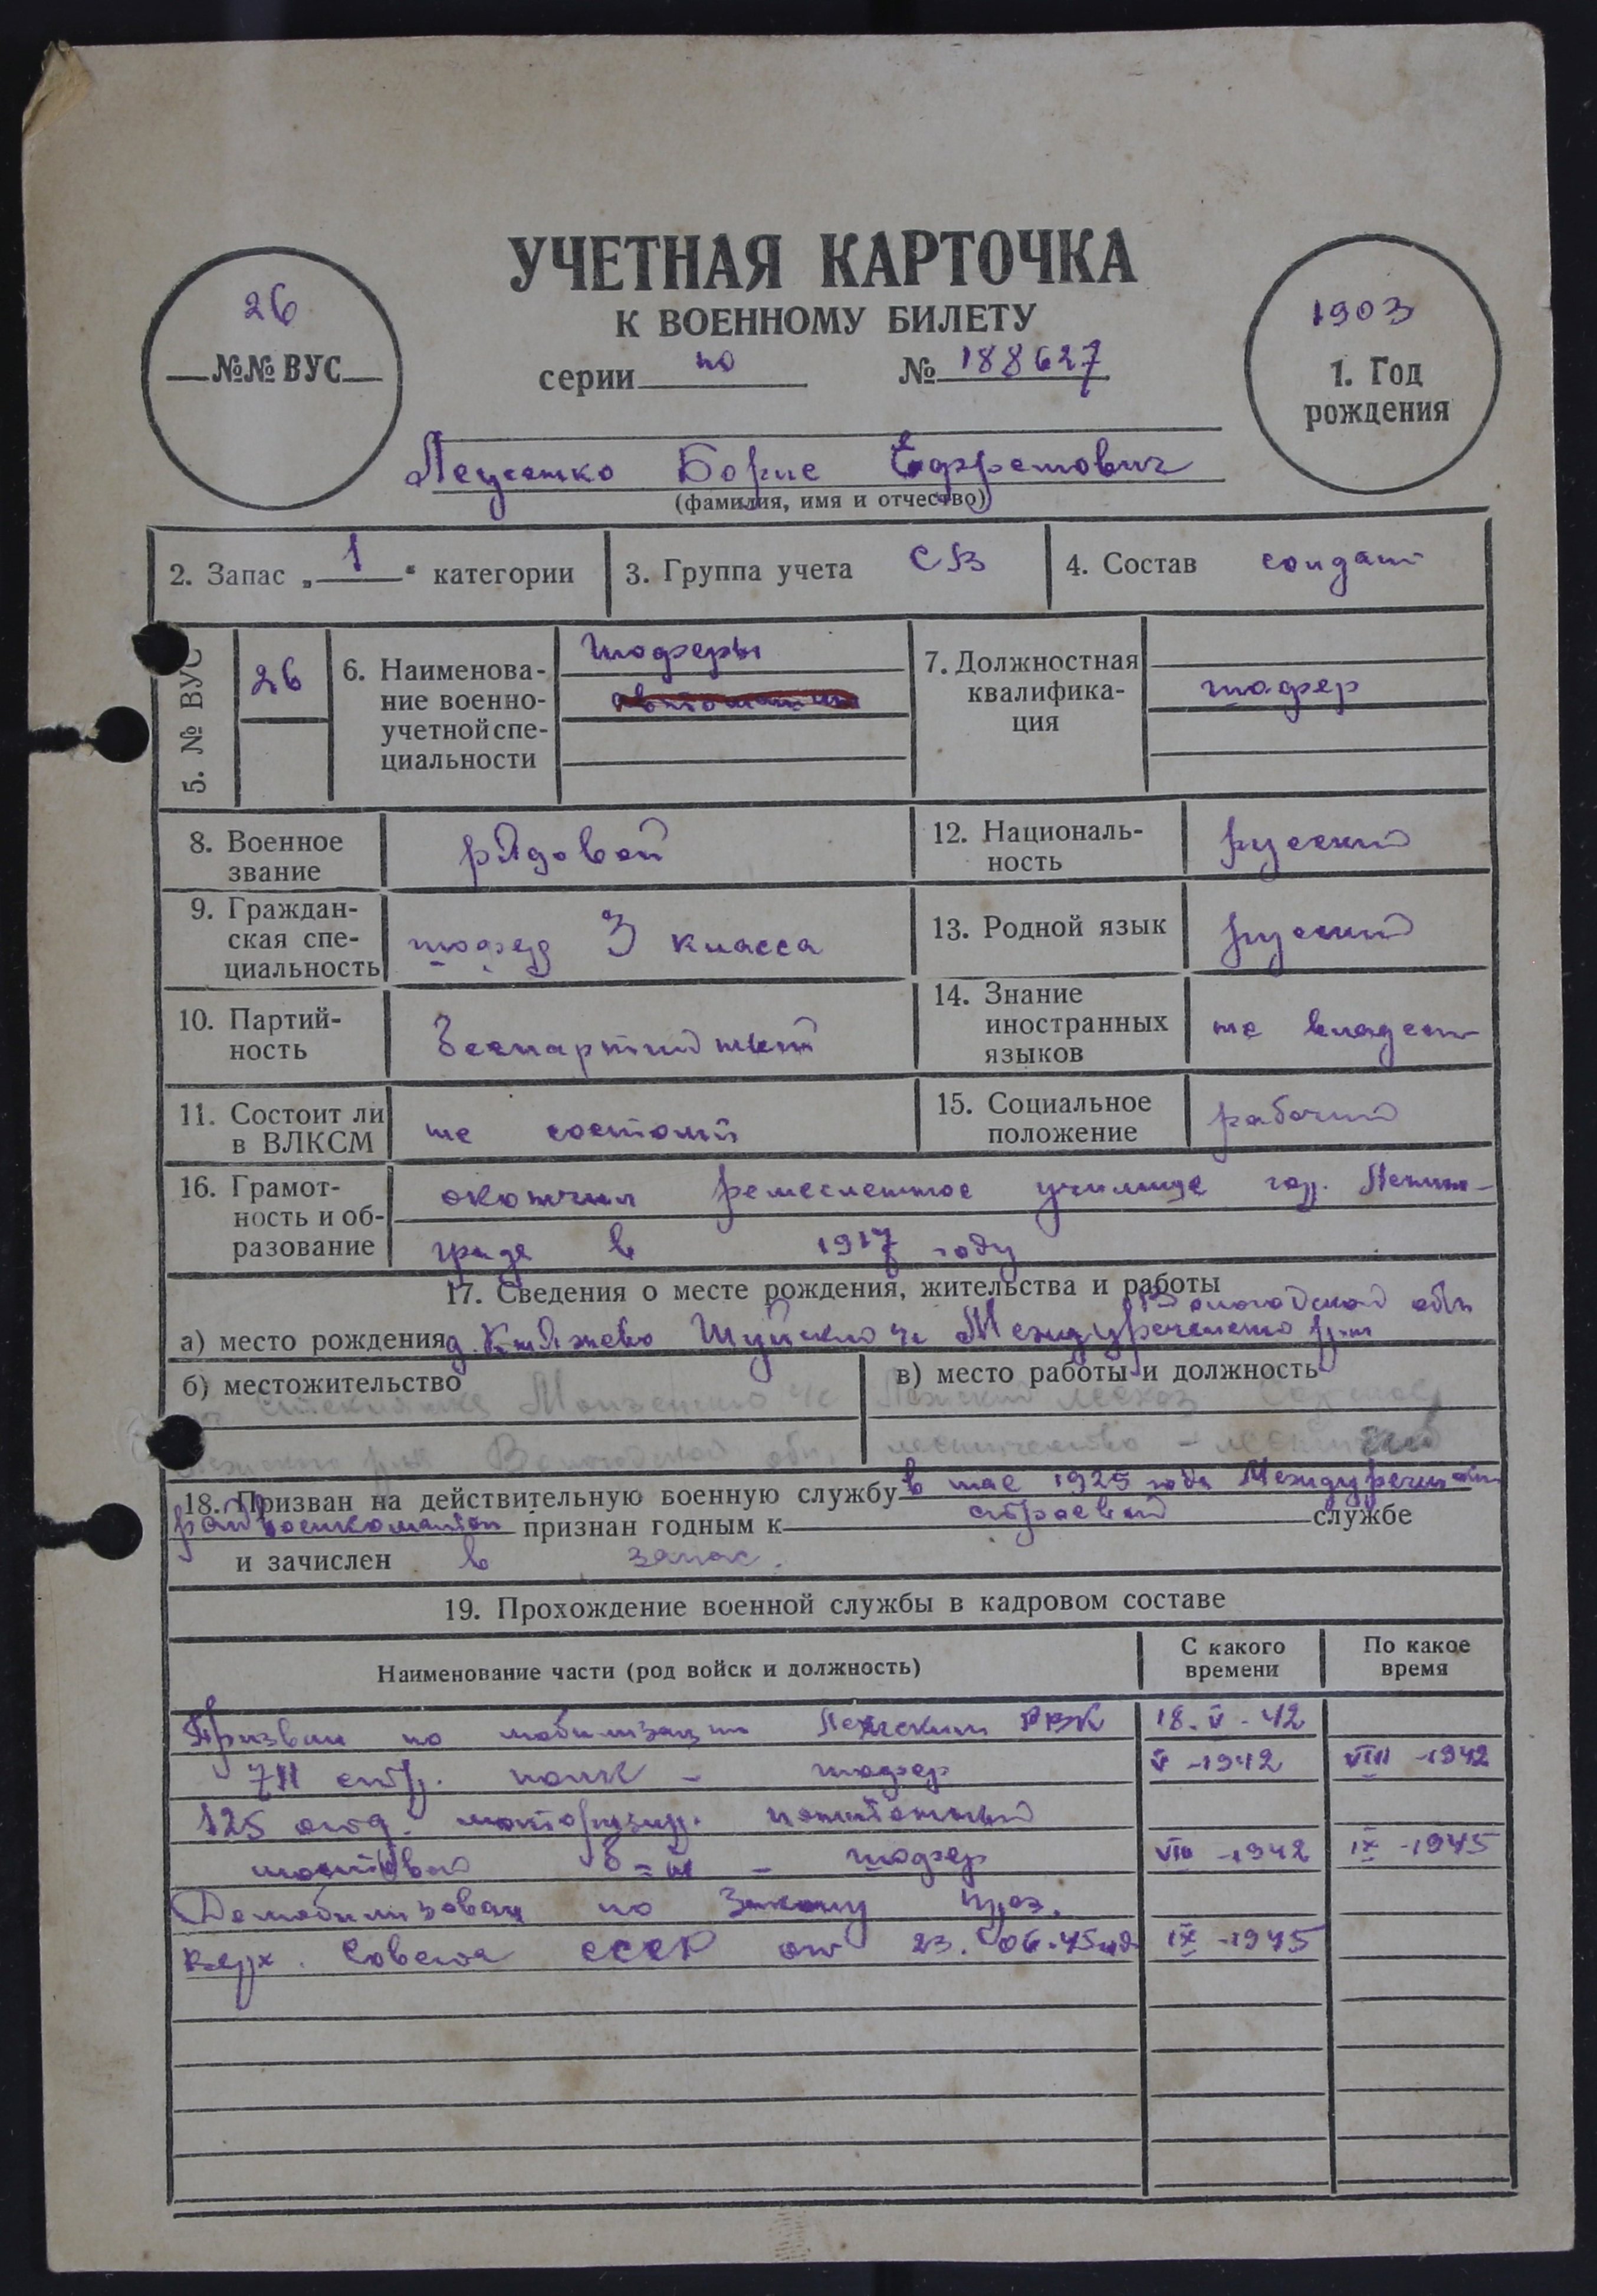 УЧЕТНАЯ КАРТОЧКА
К ВОЕННОМУ БИЛЕТУ
серии по № 188627
26
№№ ВУС
1903
1. Год
рождения
Борис
(фамилия, имя и отчество)
2. Запас „1“ категории
3. Группа учета СВ
4. Состав солдат
5. № ВУС
26
6. Наименова-
ние военно-
учетной спе-
циальности
шоферы
7. Должностная
квалифика-
ция
шофер
8. Военное
звание
рядовой
12. Националь-
ность
русский
9. Граждан-
ская спе-
циальность
шофер 3 класса
13. Родной язык
русский
10. Партий-
ность
беспартийный
14. Знание
иностранных
языков
не владеет
11. Состоит ли
в ВЛКСМ
не состоит
15. Социальное
положение
рабочий
16. Грамот-
ность и об-
разование
окончил ремесленное училище гор. Ленин-
граде в 1917 году
17. Сведения о месте рождения, жительства и работы
Вологодской обл
а) место рождения д. Княжево Шуйского с/с Междуреченского р-на
б) местожительство
в) место работы и должность
Монзенского с/с
лесхоз
р-на Вологодской обл.
лесничество –
18. Призван на действительную военную службу в мае 1925 года
райвоенкоматом признан годным к строевой службе
и зачислен в запас.
19. Прохождение военной службы в кадровом составе
Наименование части (род войск и должность)
С какого
времени
По какое
время
Призван по мобилизации Лежским РВК 18.V-42
711 стр. полк – шофер V-1942 VIII-1942
125 отд. моторизир. понтонный
мостовой б-н – шофер VIII-1942 IX-1945
Демобилизован по Закону през.
верх. Совета СССР от 23.06.45 IX-1945